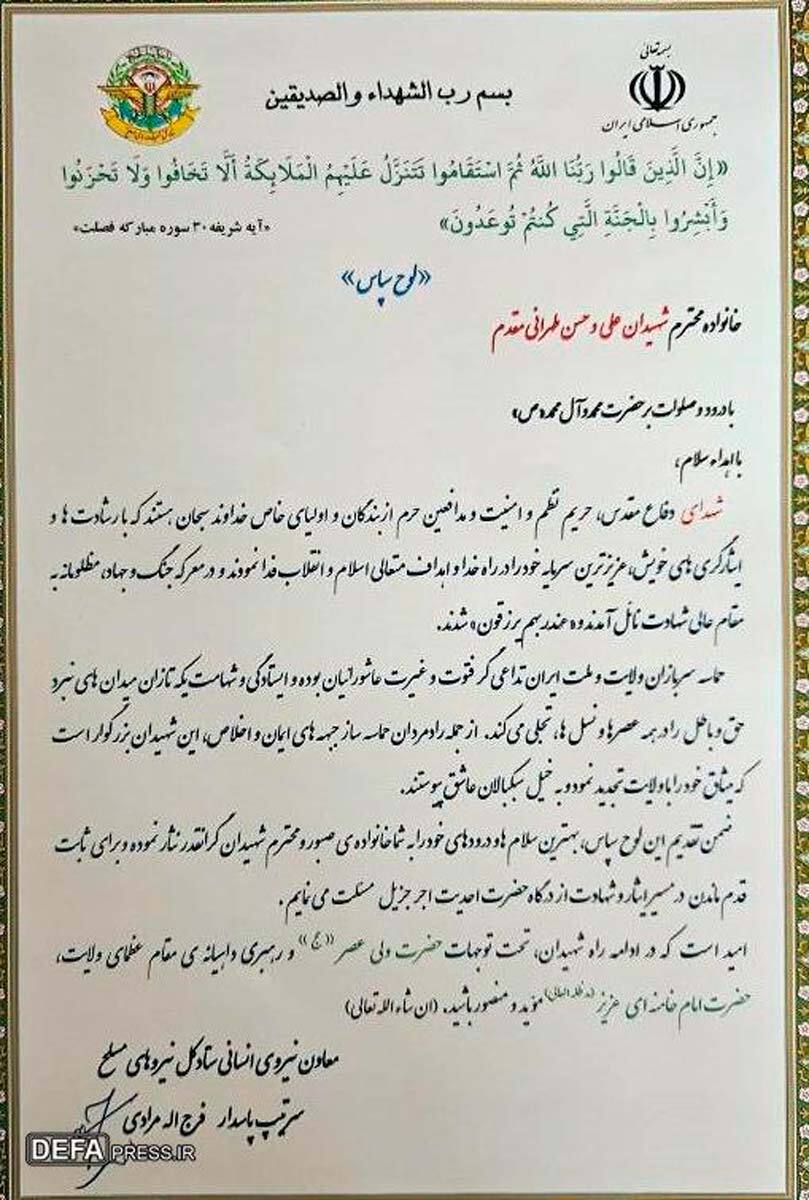 بسمه تعالی
جمهوری اسلامی ایران
بسم رب الشهداء والصدیقین
«إِنَّ الَّذِينَ قَالُوا رَبُّنَا اللَّهُ ثُمَّ اسْتَقَامُوا تَتَنَزَّلُ عَلَيْهِمُ الْمَلَائِكَةُ أَلَّا تَخَافُوا وَلَا تَحْزَنُوا
وَأَبْشِرُوا بِالْجَنَّةِ الَّتِي كُنتُمْ تُوعَدُونَ»
«آیه شریفه ۳۰ سوره مبارکه فصلت»
«لوح سپاس»
خانواده محترم شهیدان علی و حسن طهرانی مقدم
با درود و صلوات بر حضرت محمد و آل محمد «ص»
با اهداء سلام،
شهدای دفاع مقدس، حریم نظم و امنیت و مدافعین حرم از بندگان و اولیای خاص خداوند سبحان هستند که با رشادت ها و
ایثارگری های خویش، عزیزترین سرمایه خود را در راه خدا و اهداف متعالی اسلام و انقلاب فدا نمودند و در معرکه جنگ و جهاد، مظلومانه به
مقام عالی شهادت نائل آمدند و «عند ربهم یرزقون» شدند.
حماسه سربازان ولایت و ملت ایران تداعی گر فتوت و غیرت عاشورائیان بوده و ایستادگی و شهامت یکه تازان میدان های نبرد
حق و باطل را در همه عصرها و نسل ها، تجلی می کند. از جمله رادمردان حماسه ساز جبهه های ایمان و اخلاص، این شهیدان بزرگوار است
که میثاق خود را با ولایت تجدید نمود و به خیل سبکبالان عاشق پیوستند.
ضمن تقدیم این لوح سپاس، بهترین سلام ها و درودهای خود را به شما خانواده ی صبور و محترم شهیدان گرانقدر نثار نموده و برای ثابت
قدم ماندن در مسیر ایثار و شهادت از درگاه حضرت احدیت اجر جزیل مسئلت می نمایم.
امید است که در ادامه راه شهیدان، تحت توجهات حضرت ولی عصر «عج» و رهبری داهیانه ی مقام عظمای ولایت،
حضرت امام خامنه ای عزیز (مدظله العالی) مؤید و منصور باشید. (ان شاء الله تعالی)
معاون نیروی انسانی ستاد کل نیروهای مسلح
سرتیپ پاسدار فرج اله مرادی
DEFAPRESS.IR